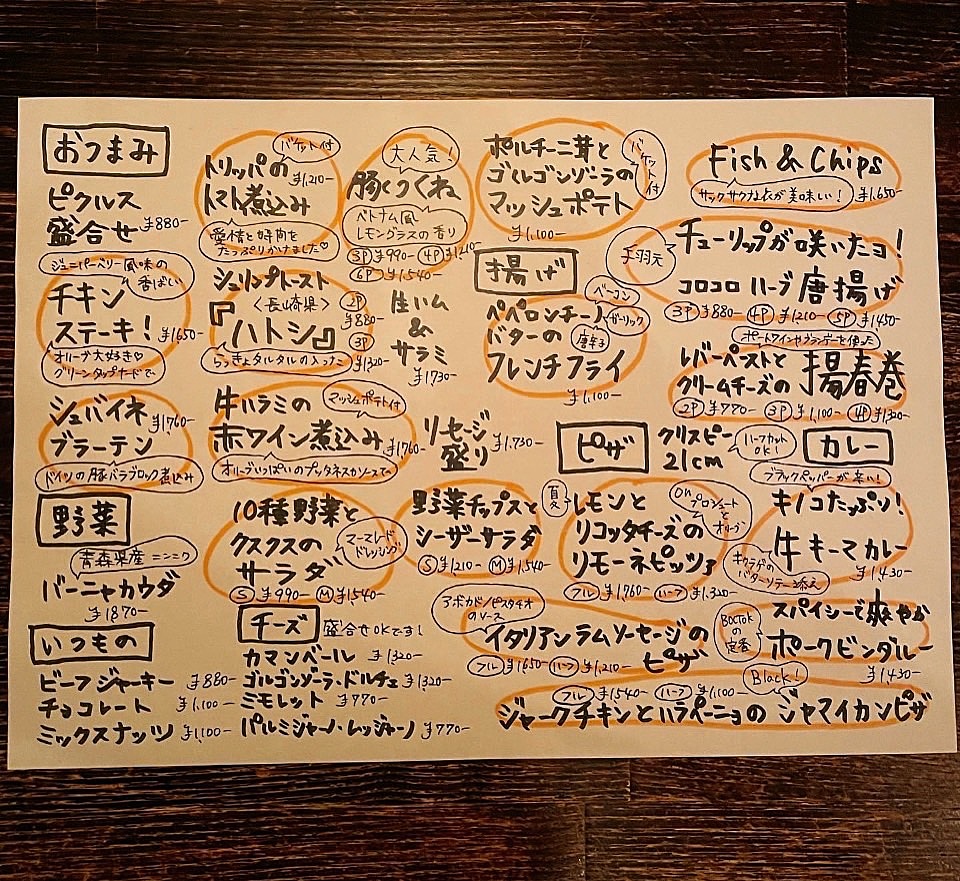 おつまみ
ピクルス
盛合せ ¥880-
ジュニパーベリー風味の
香ばしい
チキン
ステーキ! ¥1650-
オリーブ大好き♡
グリーンタップナードで
シュバイネ
ブラーテン ¥1760-
ドイツの豚バラブロック煮込み
バケット付
トリッパの ¥1,210-
トマト煮込み
愛情と時間を
たっぷりかけました♡
シュリンプトースト
〈長崎県〉
『ハトシ』
2P ¥880-
3P ¥1320-
らっきょタルタルの入った
牛ハラミの
マッシュポテト付
赤ワイン煮込み ¥1760-
オリーブいっぱいのプッタネスカソースで
大人気!
豚つくね
ベトナム風
レモングラスの香り
3P ¥990- 4P ¥1210-
6P ¥1540-
生ハム
&
サラミ
¥1730-
ソーセージ
盛り ¥1,730-
ポルチーニ茸と
ゴルゴンゾーラの
マッシュポテト
バケット付
¥1,100-
揚げ
ペペロンチーノ
バターの
フレンチフライ
ベーコン
ガーリック
唐辛子
¥1,100-
Fish & Chips
サックサクな衣が美味しい! ¥1,650-
手羽元
チューリップが咲いたヨ!
コロコロ ハーブ唐揚げ
3P ¥880- 4P ¥1210- 5P ¥1450-
ポートワインやブランデーを使った
レバーペーストと
クリームチーズの 揚春巻
2P ¥770- 3P ¥1,100- 4P ¥1,320-
野菜
青森県産ニンニク
バーニャカウダ
¥1870-
10種野菜と
クスクスの
サラダ
マーマレード
ドレッシング
S ¥990- M ¥1,540-
野菜チップスと
シーザーサラダ
S ¥1210- M ¥1,540-
ピザ
クリスピー
21cm
ハーフカット
OK!
夏
レモンと
リコッタチーズの
リモーネピッツァ
on プロシュートと
オリーブ
フル ¥1,760- ハーフ ¥1,320-
アボカド/ピスタチオ
のソース
イタリアンラムソーセージの
ピザ
フル ¥1650- ハーフ ¥1,210-
フル ¥1,540- ハーフ ¥1,100-
Black!
ジャークチキンとハラペーニョの ジャマイカンピザ
カレー
ブラックペッパーが辛い!
キノコたっぷり!
牛キーマカレー
キクラゲの
バターソテー添え ¥1,430-
BOCTOKの
定番
スパイシーで爽やか
ポークビンダルー
¥1,430-
いつもの
ビーフジャーキー ¥880-
チョコレート ¥1,100-
ミックスナッツ ¥1,100-
チーズ 盛合せOKです!
カマンベール ¥1320-
ゴルゴンゾーラ・ドルチェ ¥1,320-
ミモレット ¥770-
パルミジャーノ・レッジャーノ ¥770-